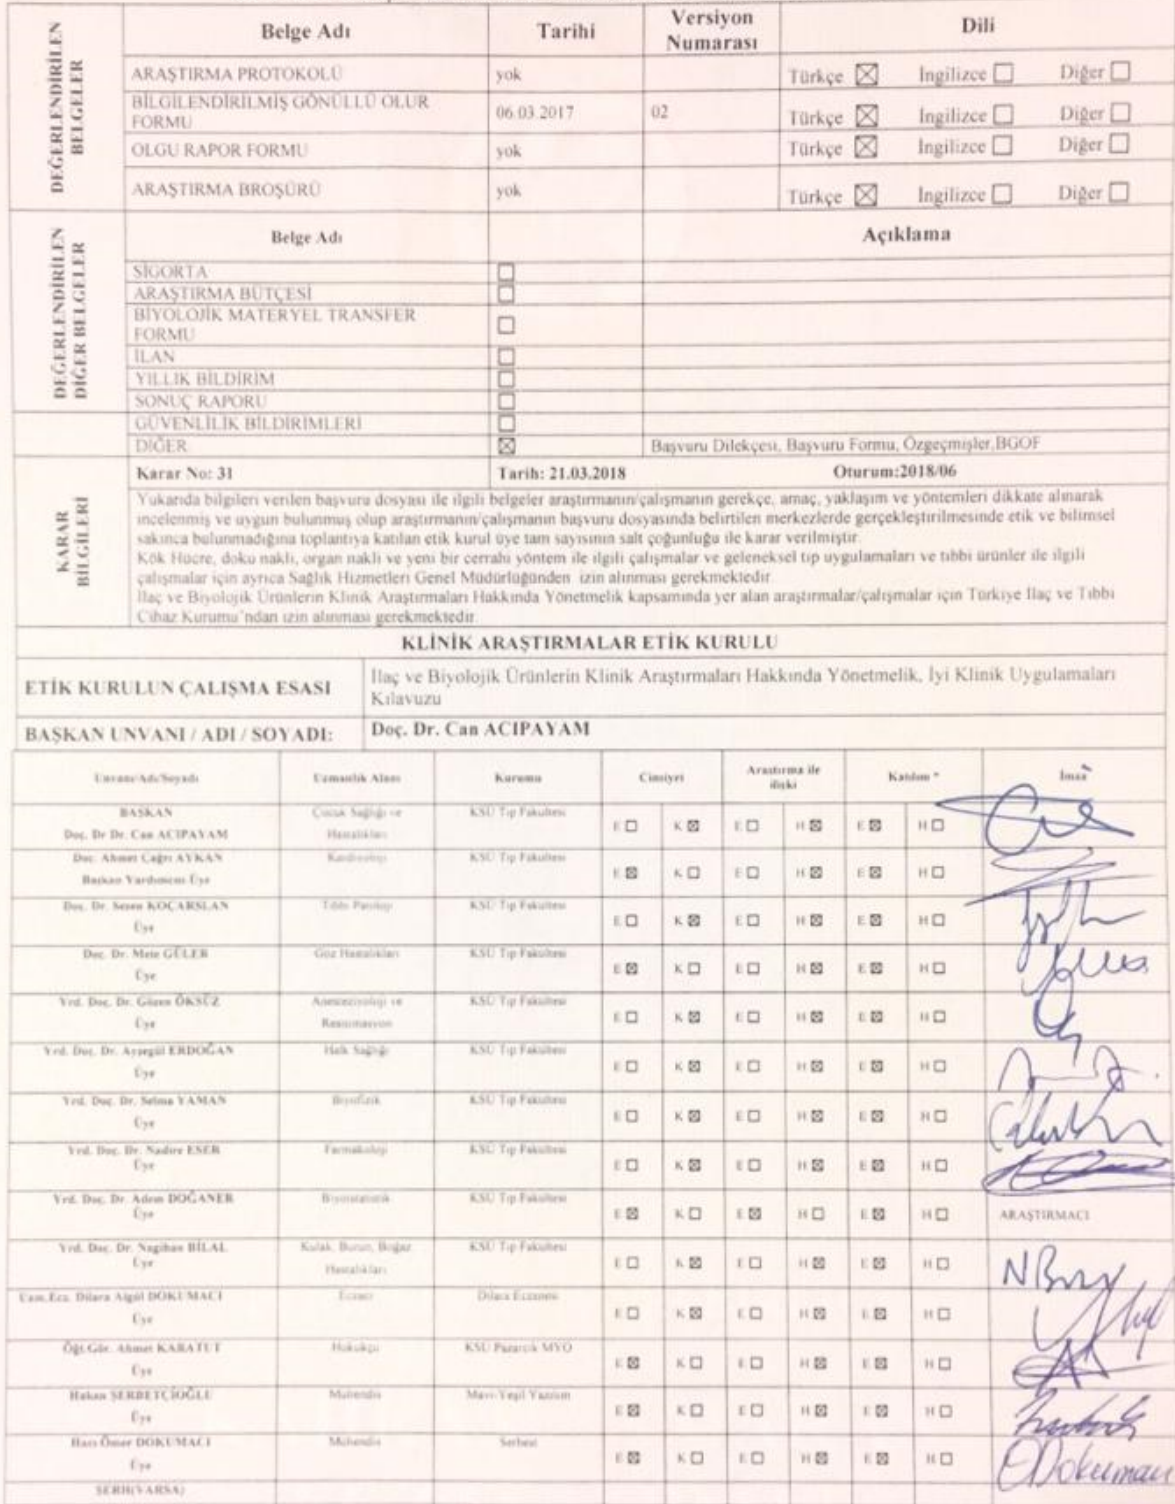 DEĞERLENDİRİLEN BELGELER
Belge Adı Tarihi Versiyon Numarası Dili
ARAŞTIRMA PROTOKOLÜ yok Türkçe İngilizce Diğer
BİLGİLENDİRİLMİŞ GÖNÜLLÜ OLUR FORMU 06.03.2017 02 Türkçe İngilizce Diğer
OLGU RAPOR FORMU yok Türkçe İngilizce Diğer
ARAŞTIRMA BROŞÜRÜ yok Türkçe İngilizce Diğer
DEĞERLENDİRİLEN DİĞER BELGELER
Belge Adı Açıklama
SİGORTA
ARAŞTIRMA BÜTÇESİ
BİYOLOJİK MATERYEL TRANSFER FORMU
İLAN
YILLIK BİLDİRİM
SONUÇ RAPORU
GÜVENLİLİK BİLDİRİMLERİ
DİĞER Başvuru Dilekçesi, Başvuru Formu, Özgeçmişler,BGOF
KARAR BİLGİLERİ
Karar No: 31 Tarih: 21.03.2018 Oturum:2018/06
Yukarıda bilgileri verilen başvuru dosyası ile ilgili belgeler araştırmanın/çalışmanın gerekçe, amaç, yaklaşım ve yöntemleri dikkate alınarak
incelenmiş ve uygun bulunmuş olup araştırmanın/çalışmanın başvuru dosyasında belirtilen merkezlerde gerçekleştirilmesinde etik ve bilimsel
sakınca bulunmadığına toplantıya katılan etik kurul üye tam sayısının salt çoğunluğu ile karar verilmiştir.
Kök Hücre, doku nakli, organ nakli ve yeni bir cerrahi yöntem ile ilgili çalışmalar ve geleneksel tıp uygulamaları ve tıbbi ürünler ile ilgili
çalışmalar için ayrıca Sağlık Hizmetleri Genel Müdürlüğünden izin alınması gerekmektedir.
İlaç ve Biyolojik Ürünlerin Klinik Araştırmaları Hakkında Yönetmelik kapsamında yer alan araştırmalar/çalışmalar için Türkiye İlaç ve Tıbbi
Cihaz Kurumu'ndan izin alınması gerekmektedir.
KLİNİK ARAŞTIRMALAR ETİK KURULU
ETİK KURULUN ÇALIŞMA ESASI İlaç ve Biyolojik Ürünlerin Klinik Araştırmaları Hakkında Yönetmelik, İyi Klinik Uygulamaları
Kılavuzu
BAŞKAN UNVANI / ADI / SOYADI: Doç. Dr. Can ACIPAYAM
Unvanı/Adı/Soyadı Uzmanlık Alanı Kurumu Cinsiyet Araştırma ile ilişki Katılım * İmza
BAŞKAN Çocuk Sağlığı ve KSÜ Tıp Fakültesi
Doç. Dr Dr. Can ACIPAYAM Hastalıkları E K E H E H
Doç. Ahmet Çağrı AYKAN Kardiyoloji KSÜ Tıp Fakültesi
Başkan Yardımcısı Üye E K E H E H
Doç. Dr. Sezen KOÇARSLAN Tıbbi Patoloji KSÜ Tıp Fakültesi
Üye E K E H E H
Doç. Dr. Mete GÜLER Göz Hastalıkları KSÜ Tıp Fakültesi
Üye E K E H E H
Yrd. Doç. Dr. Gözen ÖKSÜZ Anesteziyoloji ve KSÜ Tıp Fakültesi
Üye Reanimasyon E K E H E H
Yrd. Doç. Dr. Ayşegül ERDOĞAN Halk Sağlığı KSÜ Tıp Fakültesi
Üye E K E H E H
Yrd. Doç. Dr. Selma YAMAN Biyofizik KSÜ Tıp Fakültesi
Üye E K E H E H
Yrd. Doç. Dr. Nadire ESER Farmakoloji KSÜ Tıp Fakültesi
Üye E K E H E H
Yrd. Doç. Dr. Adem DOĞANER Biyoistatistik KSÜ Tıp Fakültesi
Üye E K E H E H ARAŞTIRMACI
Yrd. Doç. Dr. Nagihan BİLAL Kulak, Burun, Boğaz KSÜ Tıp Fakültesi
Üye Hastalıkları E K E H E H
Uzm.Ecz. Dilara Algül DOKUMACI Eczacı Dilara Eczanesi
Üye E K E H E H
Öğt.Gör. Ahmet KARATUT Hukukçu KSÜ Pazarcık MYO
Üye E K E H E H
Hakan ŞERBETÇİOĞLU Mühendis Mavi-Yeşil Yazılım
Üye E K E H E H
Hacı Ömer DOKUMACI Mühendis Serbest
Üye E K E H E H
ŞERH(VARSA)